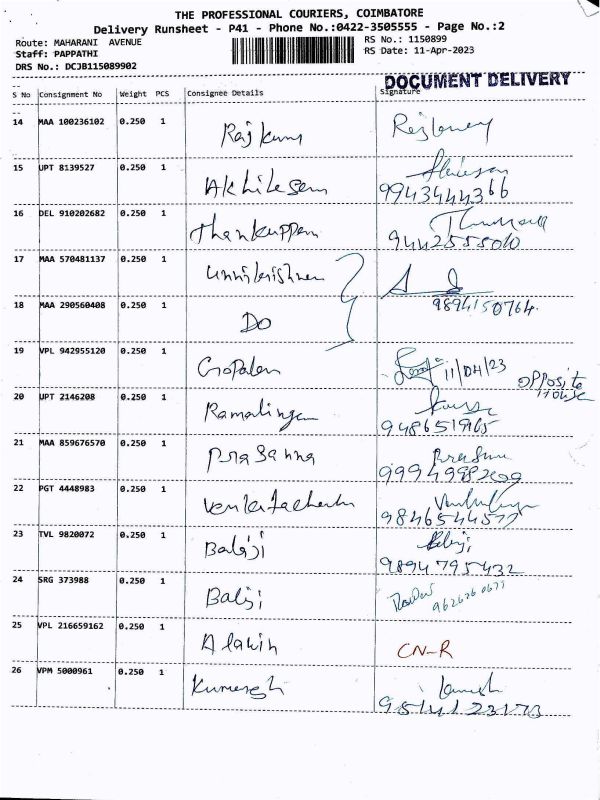 THE PROFESSIONAL COURIERS, COIMBATORE
Delivery Runsheet - P41 - Phone No.:0422-3505555 - Page No.:2
Route: MAHARANI AVENUE RS No.: 1150899
Staff: PAPPATHI RS Date: 11-Apr-2023
DRS No.: DCJB115089902
DOCUMENT DELIVERY
S No Consignment No Weight PCS Consignee Details Signature
14 MAA 100236102 0.250 1 Rajkumar
15 UPT 8139527 0.250 1 Akhilesam
9943444366
16 DEL 910202682 0.250 1 Thankuppan
9442555010
17 MAA 570481137 0.250 1 unnikrishnan
9894150764.
18 MAA 290560408 0.250 1 DO
19 VPL 942955120 0.250 1 Gopalan 11/04/23 opposite house
20 UPT 2146208 0.250 1 Ramalingam
9486519165
21 MAA 859676570 0.250 1 prasanna
22 PGT 4448983 0.250 1 venkatachalam
9846544577
23 TVL 9820072 0.250 1 Balaji Balaji
9894795432
24 SRG 373988 0.250 1 Balaji
25 VPL 216659162 0.250 1 CN-R
26 VPM 5000961 0.250 1 Kumaresh